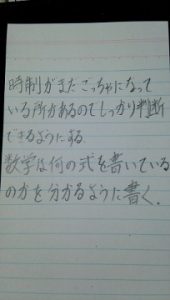 時制がまたごっちゃになって
いる所があるのでしっかり判断
できるようにする
数学は何の式を書いている
のかを分かるように書く。